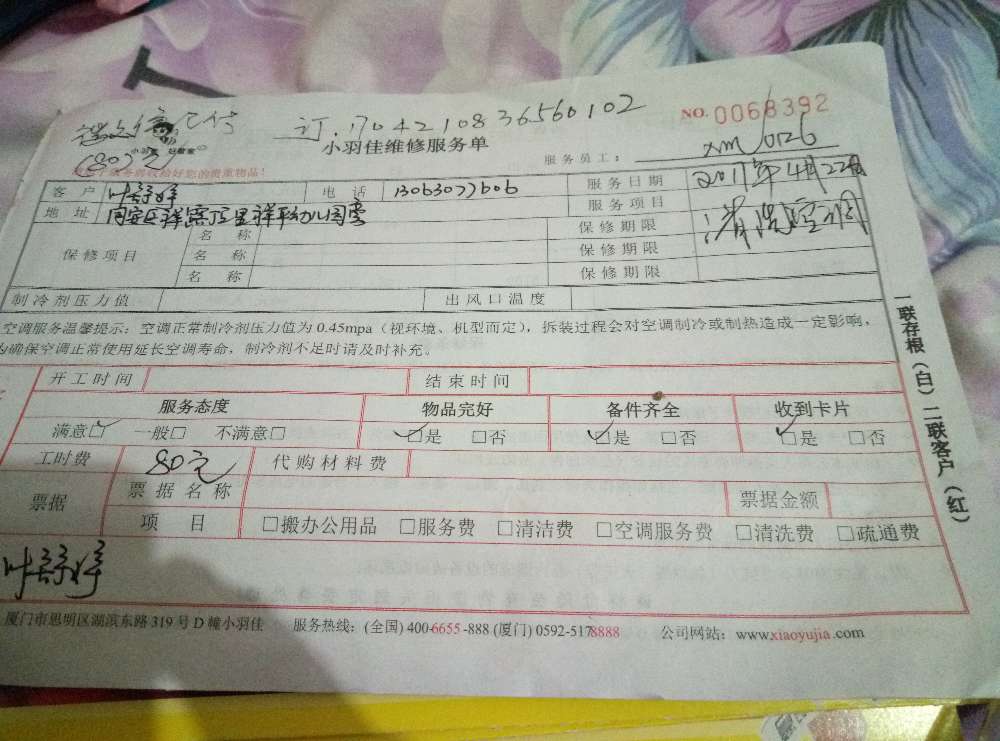 订.1704210836560102
NO. 0068392
小羽佳维修服务单
服务员工： xm 0126
(80元)
客 户 叶舒婷 电 话 13063077606 服务日期 2017年4月22日
地 址 服务项目 清洗空调
保修项目 名 称 保修期限
名 称 保修期限
名 称 保修期限
制冷剂压力值 出风口温度
空调服务温馨提示：空调正常制冷剂压力值为 0.45mpa（视环境、机型而定），拆装过程会对空调制冷或制热造成一定影响，
为确保空调正常使用延长空调寿命，制冷剂不足时请及时补充。
开工时间 结束时间
服务态度 物品完好 备件齐全 收到卡片
满意☑ 一般□ 不满意□ ☑是 □否 ☑是 □否 ☑是 □否
工时费 80元 代购材料费
票据 票据名称 票据金额
项 目 □搬办公用品 □服务费 □清洁费 □空调服务费 □清洗费 □疏通费
叶舒婷
厦门市思明区湖滨东路 319 号 D 幢小羽佳 服务热线：(全国) 400-6655-888 (厦门) 0592-5178888 公司网站：www.xiaoyujia.com
一联存根（白）二联客户（红）